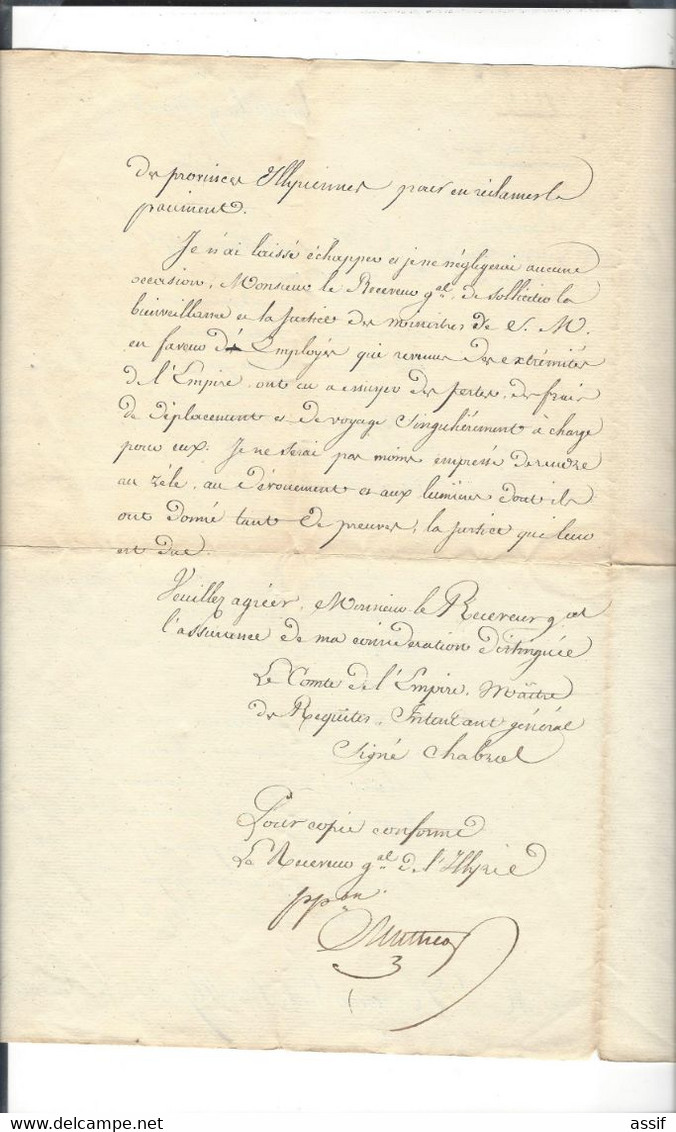 des provinces Illyriennes pour en réclamer le
paiement.
Je n'ai laissé échapper et je ne négligerai aucune
occasion, Monsieur le Receveur gal, de solliciter la
bienveillance et la justice des ministres de S. M.
en faveur d'Employés qui revenus des extrémités
de l'Empire, ont eu a essuyer des pertes, des frais
de déplacement et de voyage singulièrement à charge
pour eux. Je ne serai pas moins empressé de rendre
au zèle, au dévouement et aux lumières dont ils
ont donné tant de preuves, la justice qui leur
est due.
Veuillez agréer, Monsieur le Receveur gal
l'assurance de ma considération distinguée
Le Comte de l'Empire, Maître
des Requêtes, Intendant général
Signé Chabrol
Pour copie conforme
Le Receveur gal de l'Illyrie
ppon
assif